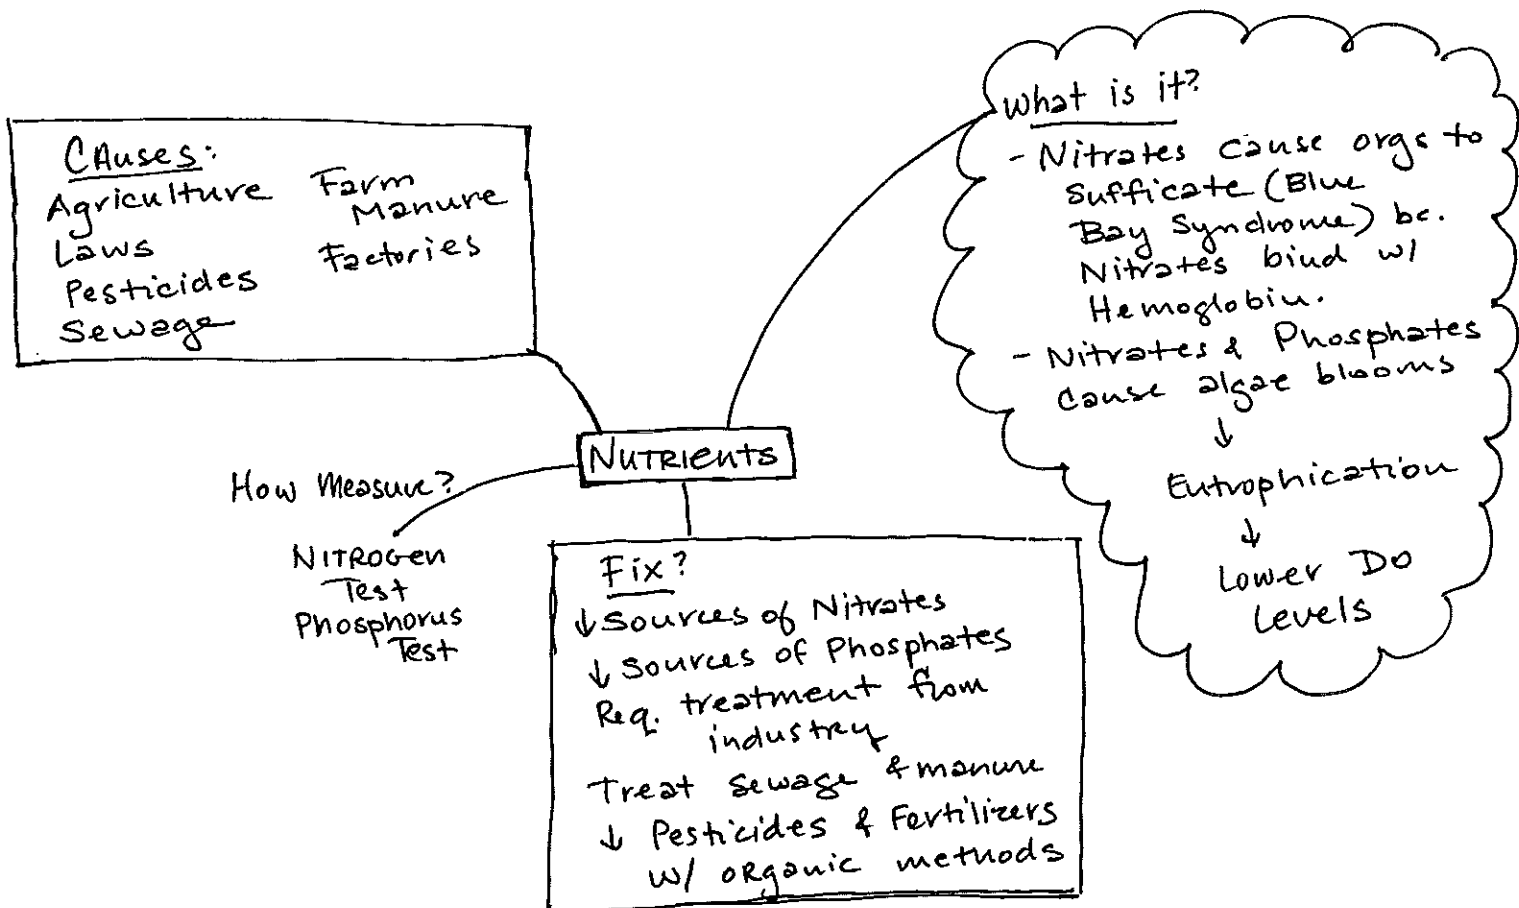 Causes:
Agriculture Farm
Manure
Laws Factories
Pesticides
Sewage
What is it?
- Nitrates cause orgs to
Sufficate (Blue
Bay Syndrome) bc.
Nitrates bind w/
Hemoglobin.
- Nitrates & Phosphates
cause algae blooms
↓
Eutrophication
↓
Lower DO
Levels
NUTRIENTS
How Measure?
NITROGEN
Test
Phosphorus
Test
Fix?
↓ Sources of Nitrates
↓ Sources of Phosphates
Req. treatment from
industry
Treat Sewage & manure
↓ Pesticides & Fertilizers
w/ organic methods